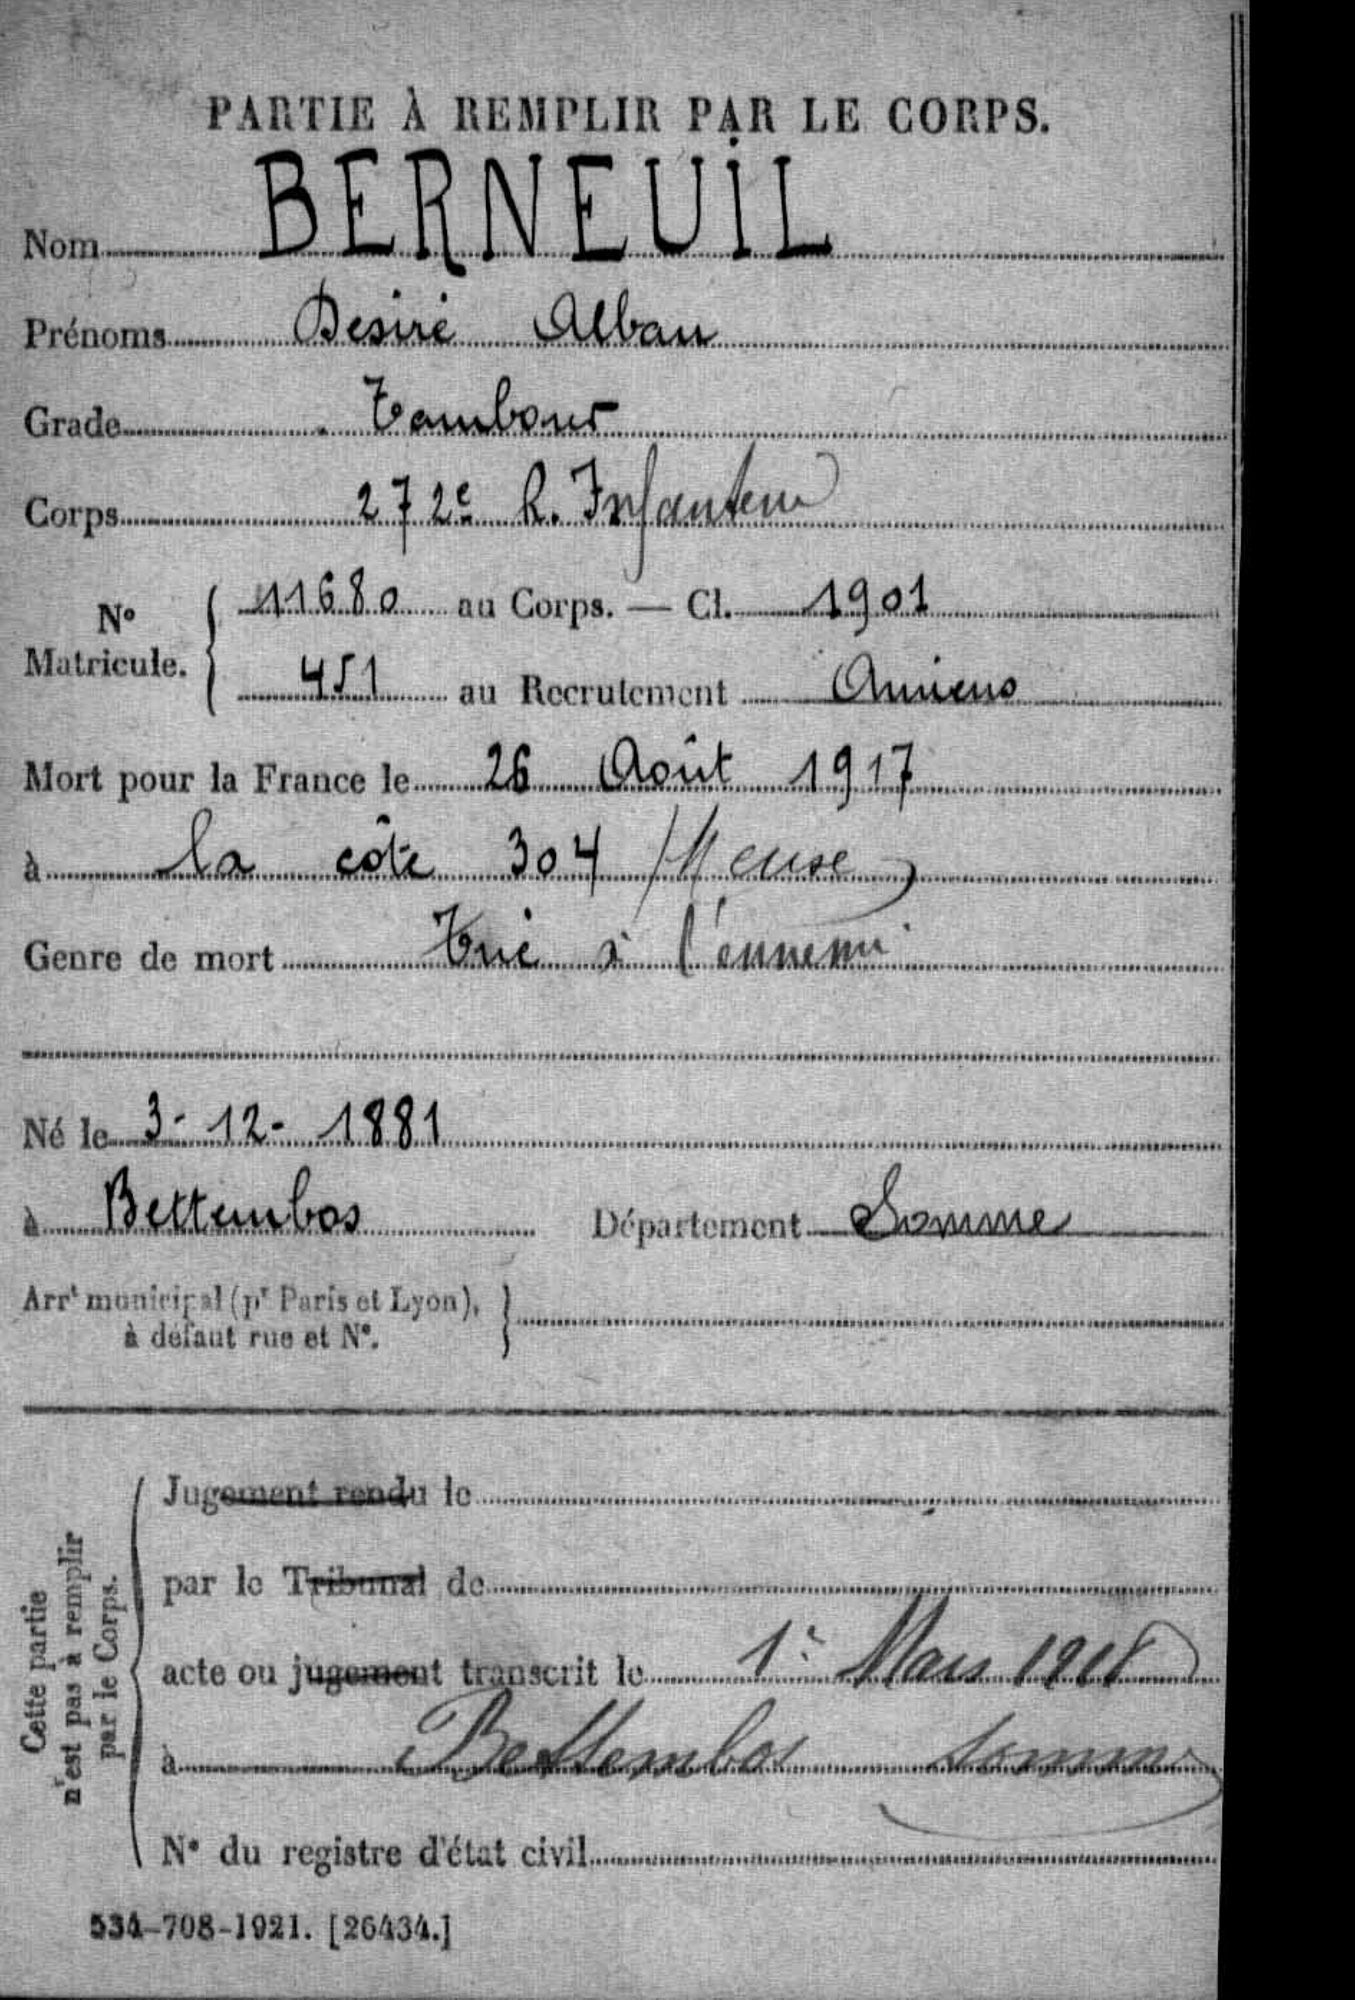 PARTIE À REMPLIR PAR LE CORPS.
Nom BERNEUIL
Prénoms Désiré Alban
Grade Tambour
Corps 272e R. Infanterie
N° Matricule. 11680 au Corps. — Cl. 1901
451 au Recrutement Amiens
Mort pour la France le 26 Août 1917
à la côte 304 Meuse
Genre de mort Tué à l'ennemi
Né le 3-12-1881
à Bettembos Département Somme
Arrt municipal (pr Paris et Lyon),
à défaut rue et N°.
Cette partie
n'est pas à remplir
par le Corps.
Jugement rendu le
par le Tribunal de
acte ou jugement transcrit le 1er Mars 1918
à Bettembos Somme
N° du registre d'état civil
534-708-1921. [26434.]